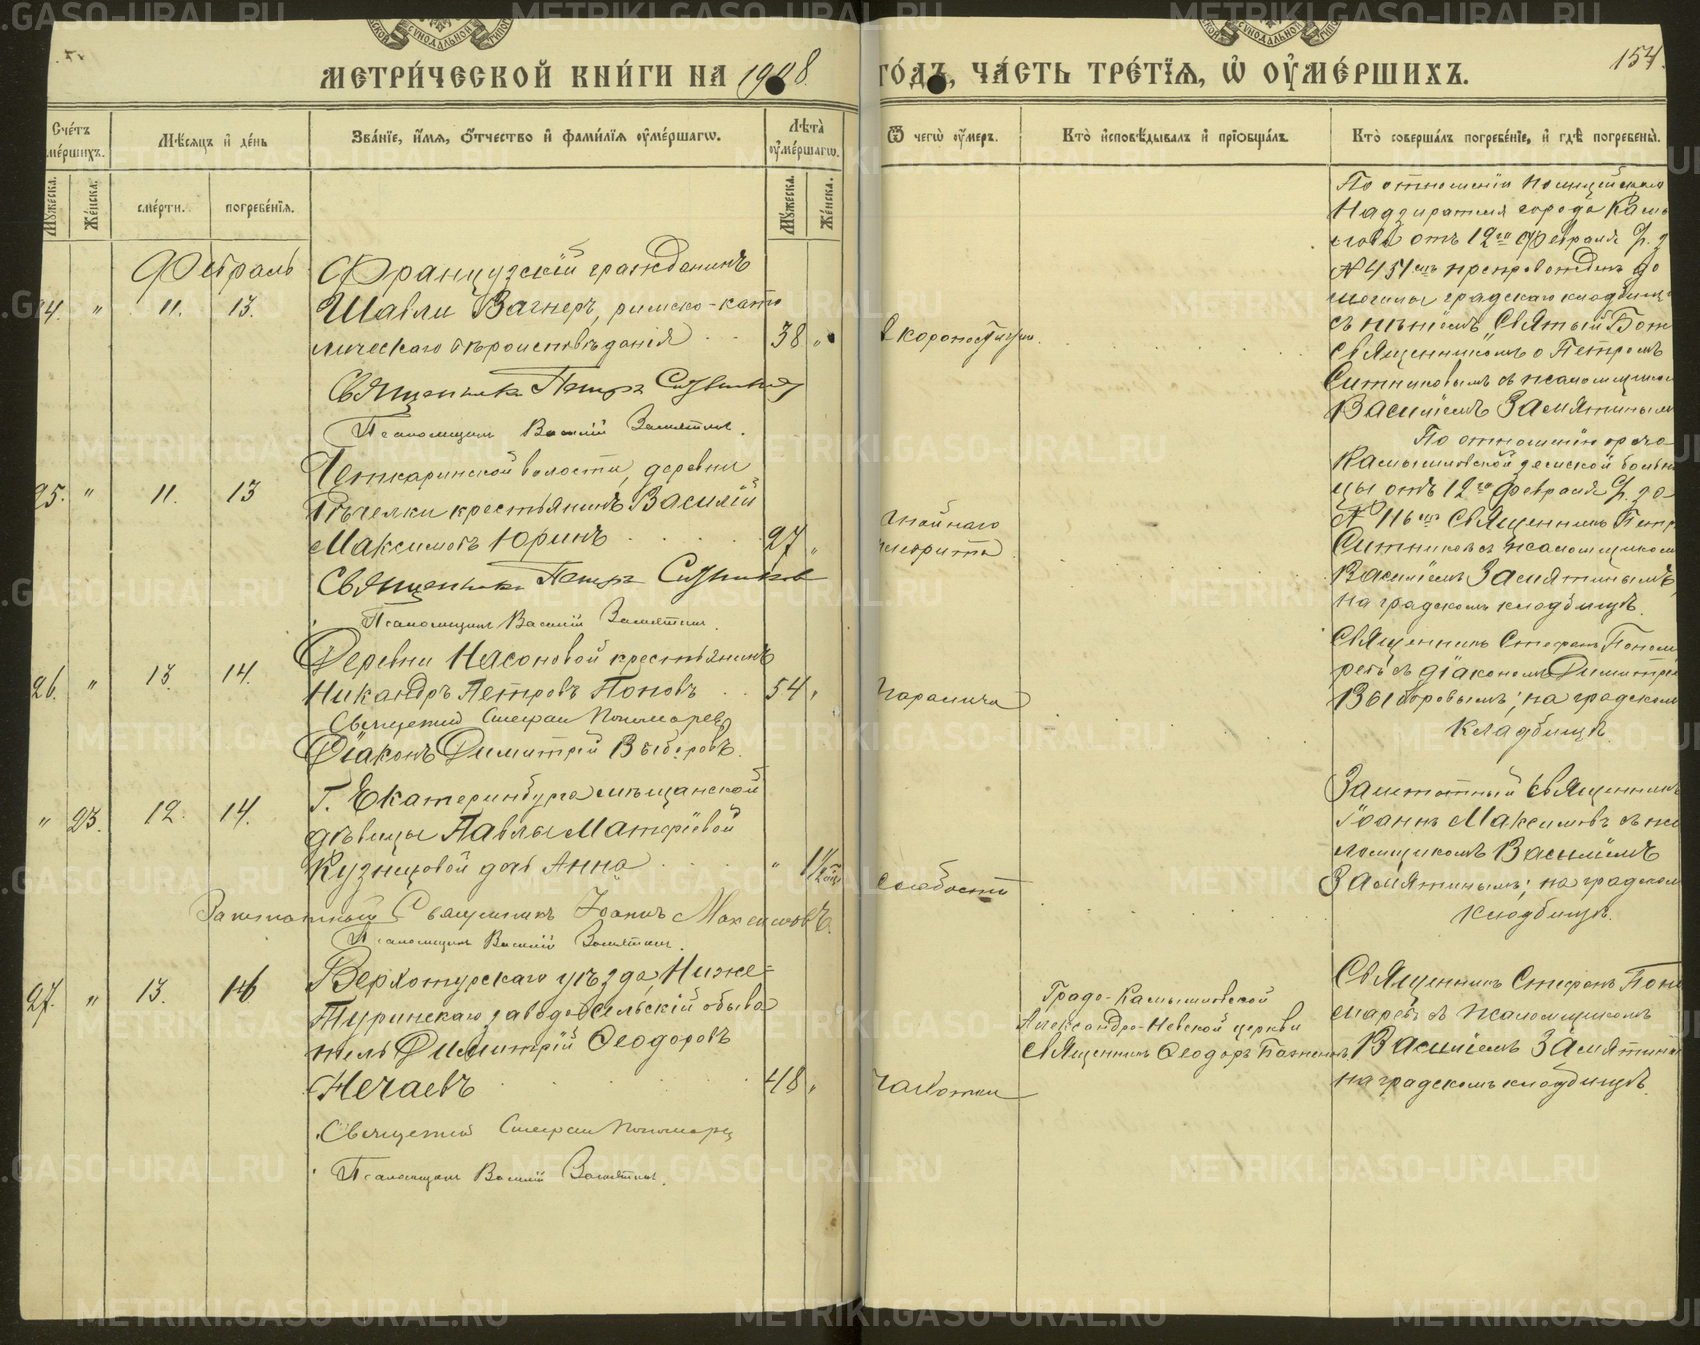 МЕТРИ́ЧЕСКОЙ КНИ́ГИ НА 1908 ГО́ДЪ, ЧА́СТЬ ТРЕ́ТІЯ, Ѡ҆ ОУ҆МЕ́РШИХЪ.
154.
Сче́тъ
ме́ршихъ.
Мѣ́сяцъ и҆ де́нь
Зва́ніе, и҆́мя, ѻ҆́тчество и҆ фами́лія оу҆ме́ршагѡ.
Лѣ́та
оу҆ме́ршагѡ.
Ѿ чегѡ̀ оу҆́меръ.
Кто̀ и҆сповѣ́дывалъ и҆ прїѡбща́лъ.
Кто̀ соверша́лъ погребе́ніе, и҆ гдѣ̀ погребены̀.
Му́жеска.
Же́нска.
сме́рти.
погребе́нія.
Му́жеска.
Же́нска.
Февраль
Французскій гражданинъ
24. " 11. 13. Шавли Вагнеръ, римско-като
лическаго вѣроисповѣданія 38 "
Священникъ Петръ Ситниковъ
Псаломщикъ Василій Замятинъ.
По отношенію Полицейскаго
Надзирателя города Камы
шлова отъ 12го Февраля с/г. за
№ 451мъ препровожденъ до
могилы градскаго кладбища
съ пѣніемъ „Святый Боже"
Священникомъ о Петромъ
Ситниковымъ съ псаломщикомъ
Василіемъ Замятинымъ
Четкаринской волости, деревни
25. " 11. 13 Бѣчелки крестьянинъ Василій
Максимовъ Юринъ 27 "
Священникъ Петръ Ситниковъ
Псаломщикъ Василій Замятинъ.
Гнойнаго
плеврита
По отношенію врача
Камышловской земской больни
цы отъ 12го Февраля с/г. за
№ 116мъ Священникъ Петръ
Ситниковъ съ псаломщикомъ
Василіемъ Замятинымъ,
на градскомъ кладбищѣ.
Деревни Насоновой крестьянинъ
26. " 13. 14. Никандръ Петровъ Поповъ 54 "
Священникъ Стефанъ Пономаревъ
Діаконъ Димитрій Выборовъ.
Паралича
Священникъ Стефанъ Поном
ревъ съ діакономъ Димитріе
Выборовымъ; на градскомъ
кладбищѣ.
Г. Екатеринбурга мѣщанской
" 23. 12. 14. дѣвицы Павлы Матѳіевой
Кузнецовой дочь Анна " 1 1/2
Заштатный Священникъ Іоаннъ Максимовъ.
Псаломщикъ Василій Замятинъ.
слабости
Заштатный Священникъ
Іоаннъ Максимовъ съ пса
ломщикомъ Василіемъ
Замятинымъ; на градском
кладбищѣ.
Верхотурскаго уѣзда, Ниже-
27. " 13. 16 Туринскаго завода сельскій обыва
тель Димитрій Ѳеодоровъ
Нечаевъ 48 "
Священникъ Стефанъ Пономаревъ
Псаломщикъ Василій Замятинъ.
Чахотки
Градо-Камышловской
Александро-Невской церкви
Священникъ Ѳеодоръ Баженовъ
Священникъ Стефанъ Поно
маревъ съ псаломщикомъ
Василіемъ Замятины
на градскомъ кладбищѣ.
METRIKI.GASO-URAL.RU